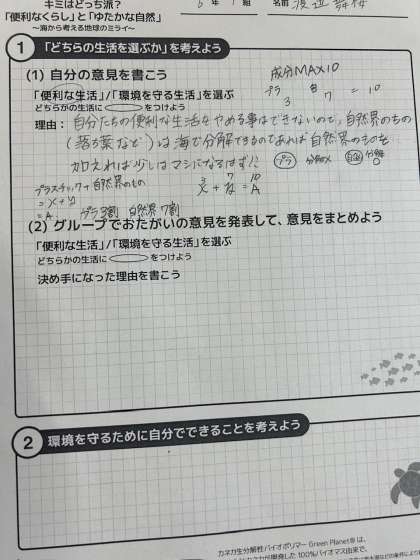 キミはどっち派?
「便利なくらし」と「ゆたかな自然」
〜海から考える地球のミライ〜
6年 1組 名前 渡辺
1 「どちらの生活を選ぶか」を考えよう
(1) 自分の意見を書こう
「便利な生活」/「環境を守る生活」を選ぶ
どちらかの生活に をつけよう
成分MAX10
プラ
3 7 = 10
理由: 自分たちの便利な生活をやめる事はできないので、自然界のもの
(落ち葉など)は海で分解できるのであれば自然界のものを
加えれば少しはマシになるはず!?
プラ 分解× 自然 分解○
プラスチック+自然界のもの
= x + y
= A
3 7 10
x + y = A
プラ3割 自然界7割
(2) グループでおたがいの意見を発表して、意見をまとめよう
「便利な生活」/「環境を守る生活」を選ぶ
どちらかの生活に をつけよう
決め手になった理由を書こう
2 環境を守るために自分でできることを考えよう
カネカ生分解性バイオポリマー Green Planet® は、
カネカが開発した 100%バイオマス由来で、